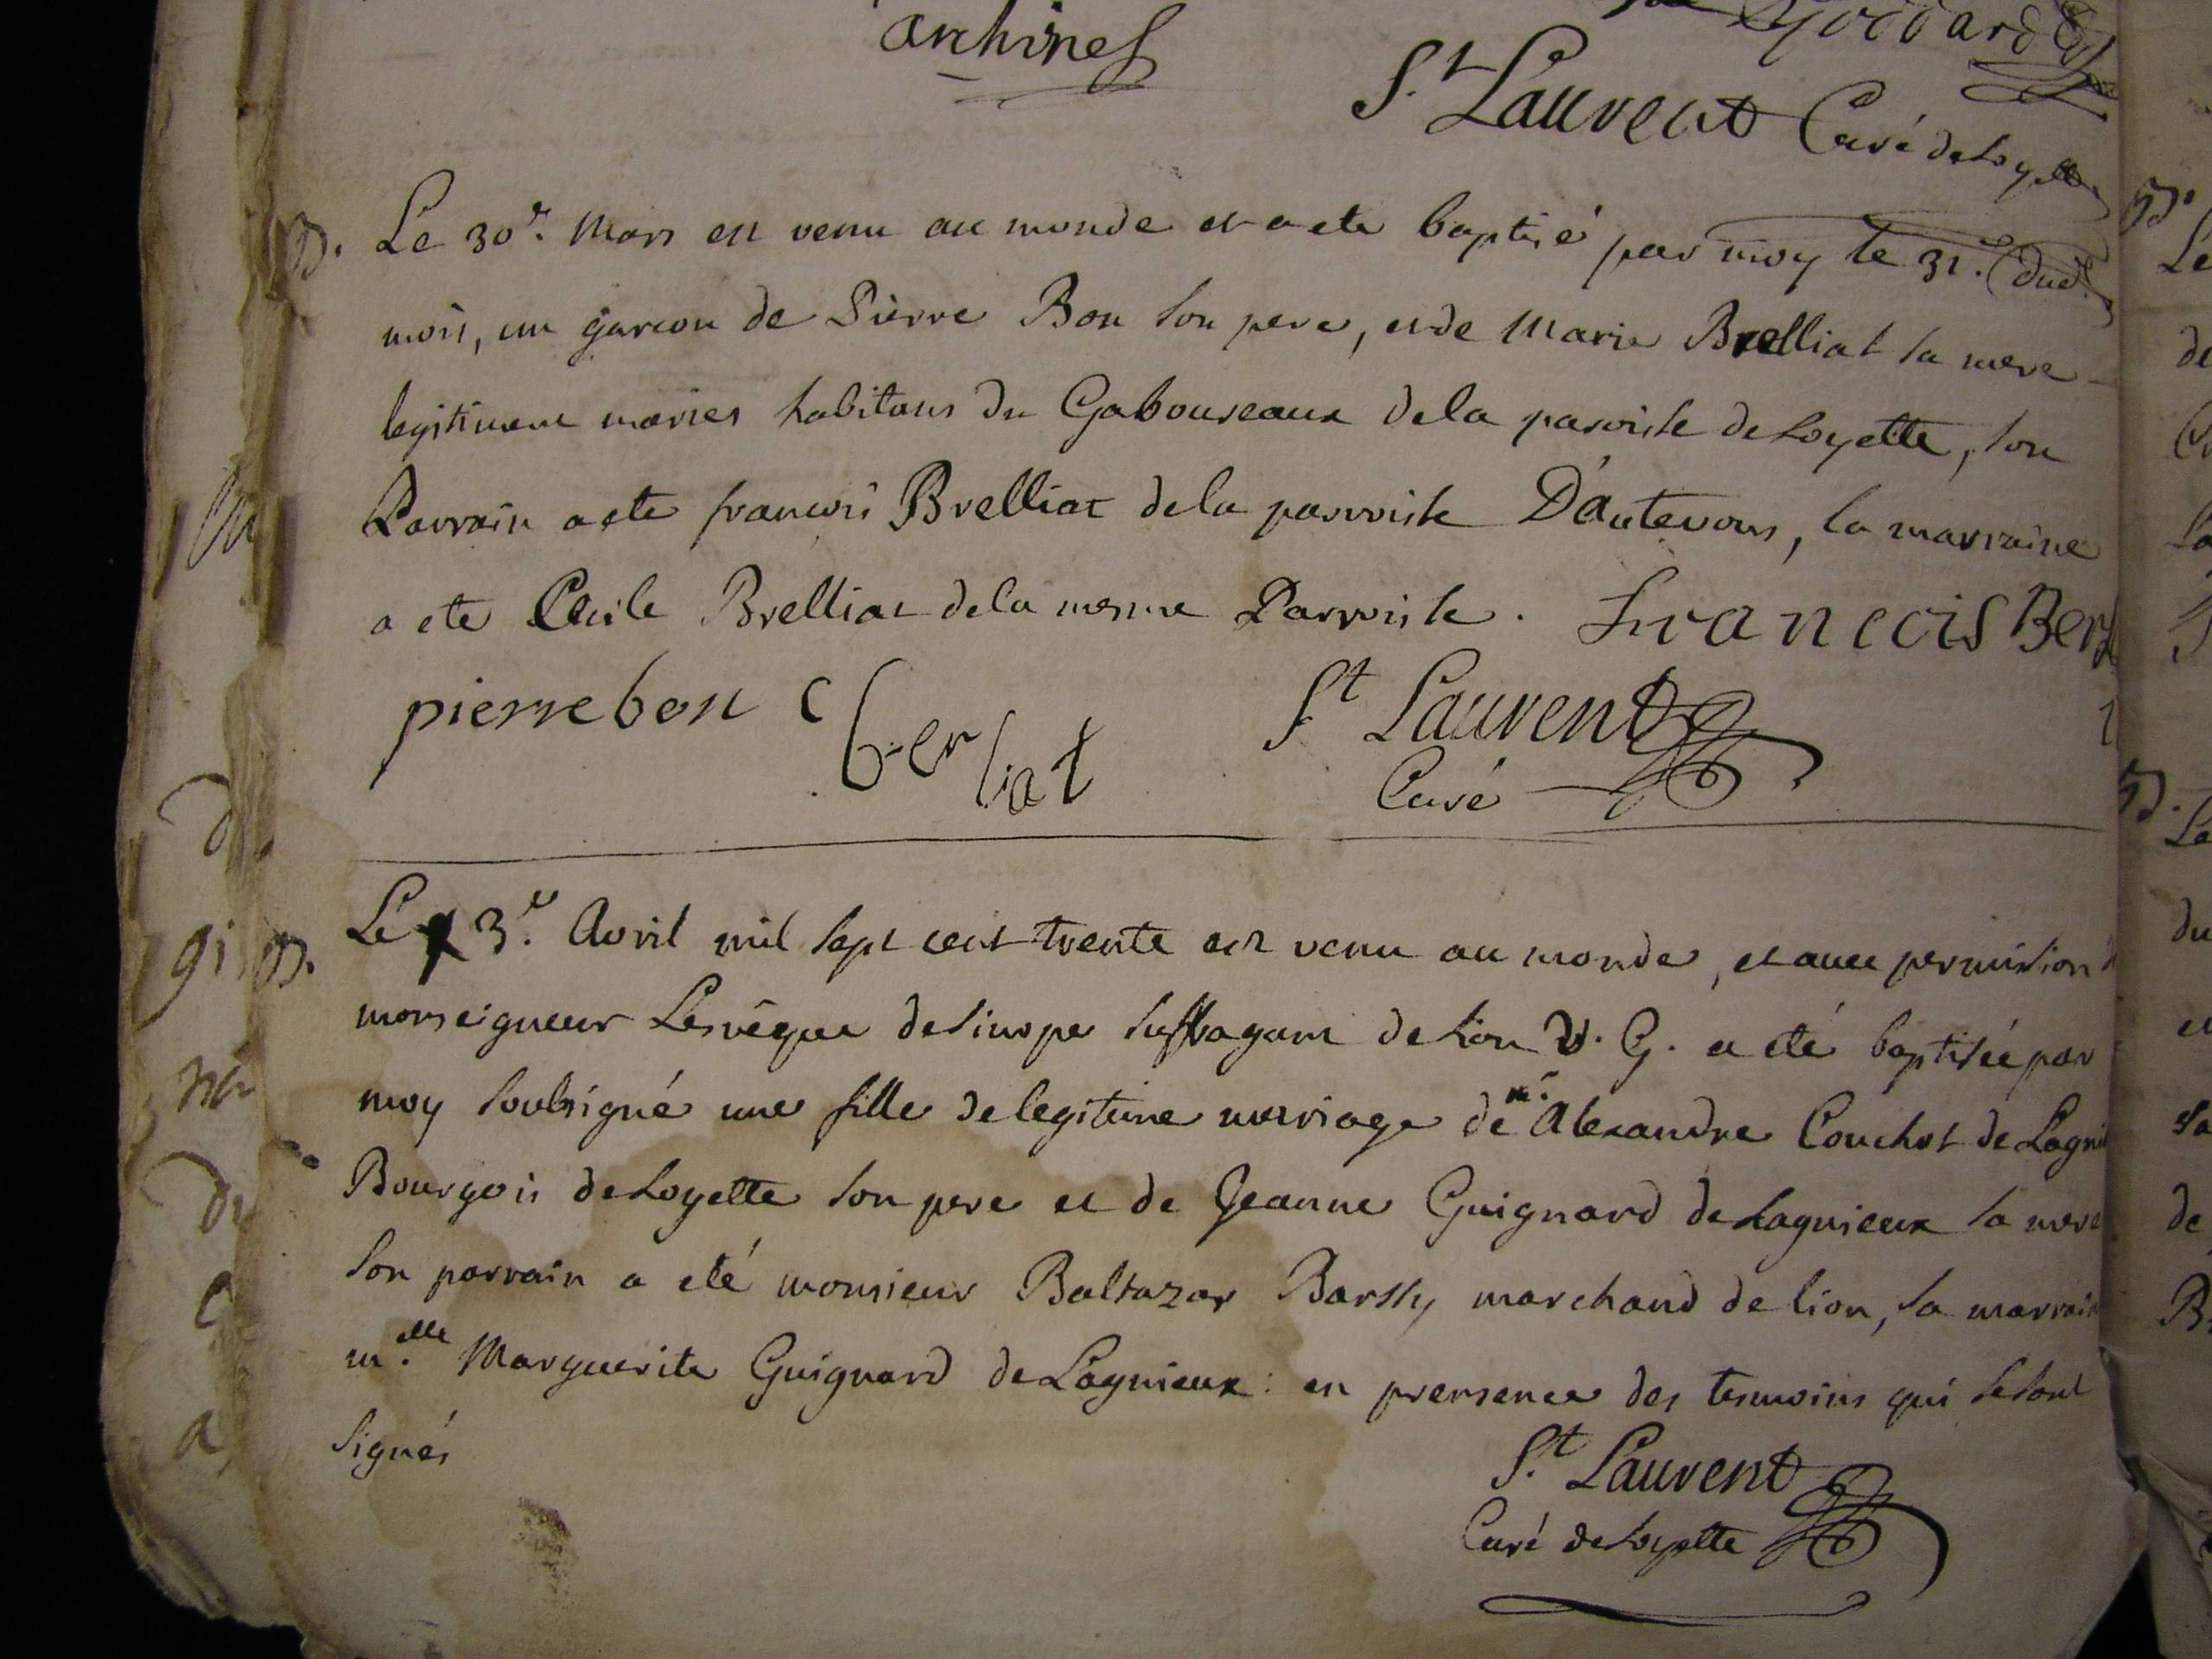 archinet
Goddard
S.t Laurent Curé de Loyette
B. Le 30e. Mars est venu au monde et a ete baptisé par moy le 31. dud.
mois, un garcon de Pierre Bon son pere, et de Marie Brelliat sa mere
legitimem maries habitans du Gaboureaux de la paroisse de Loyette, son
Parrain a ete francois Brelliat de la parroisse D'Autevous, la marraine
a ete Cecile Brelliat de la mesme Parroisse. Francois Ber
pierre bon C berliat St Laurent
Curé
B. Le 3.e Avril mil sept cent trente est venu au monde, et avec permission
monseigneur Lesvêque de Sinope suffragant de Lion V. G. a eté baptisée par
moy soubsigné une fille de legitime marriage de mr. Alexandre Couchot de Lagni
Bourgois de Loyette son pere et de Jeanne Guignard de Lagnieux sa mere
son parrain a eté monsieur Baltazar Barsly marchand de lion, sa marrain
m.elle Marguerite Guignard de Lagnieux: en presence des tesmoins qui se sont
signés
S.t Laurent
Curé de Loyette